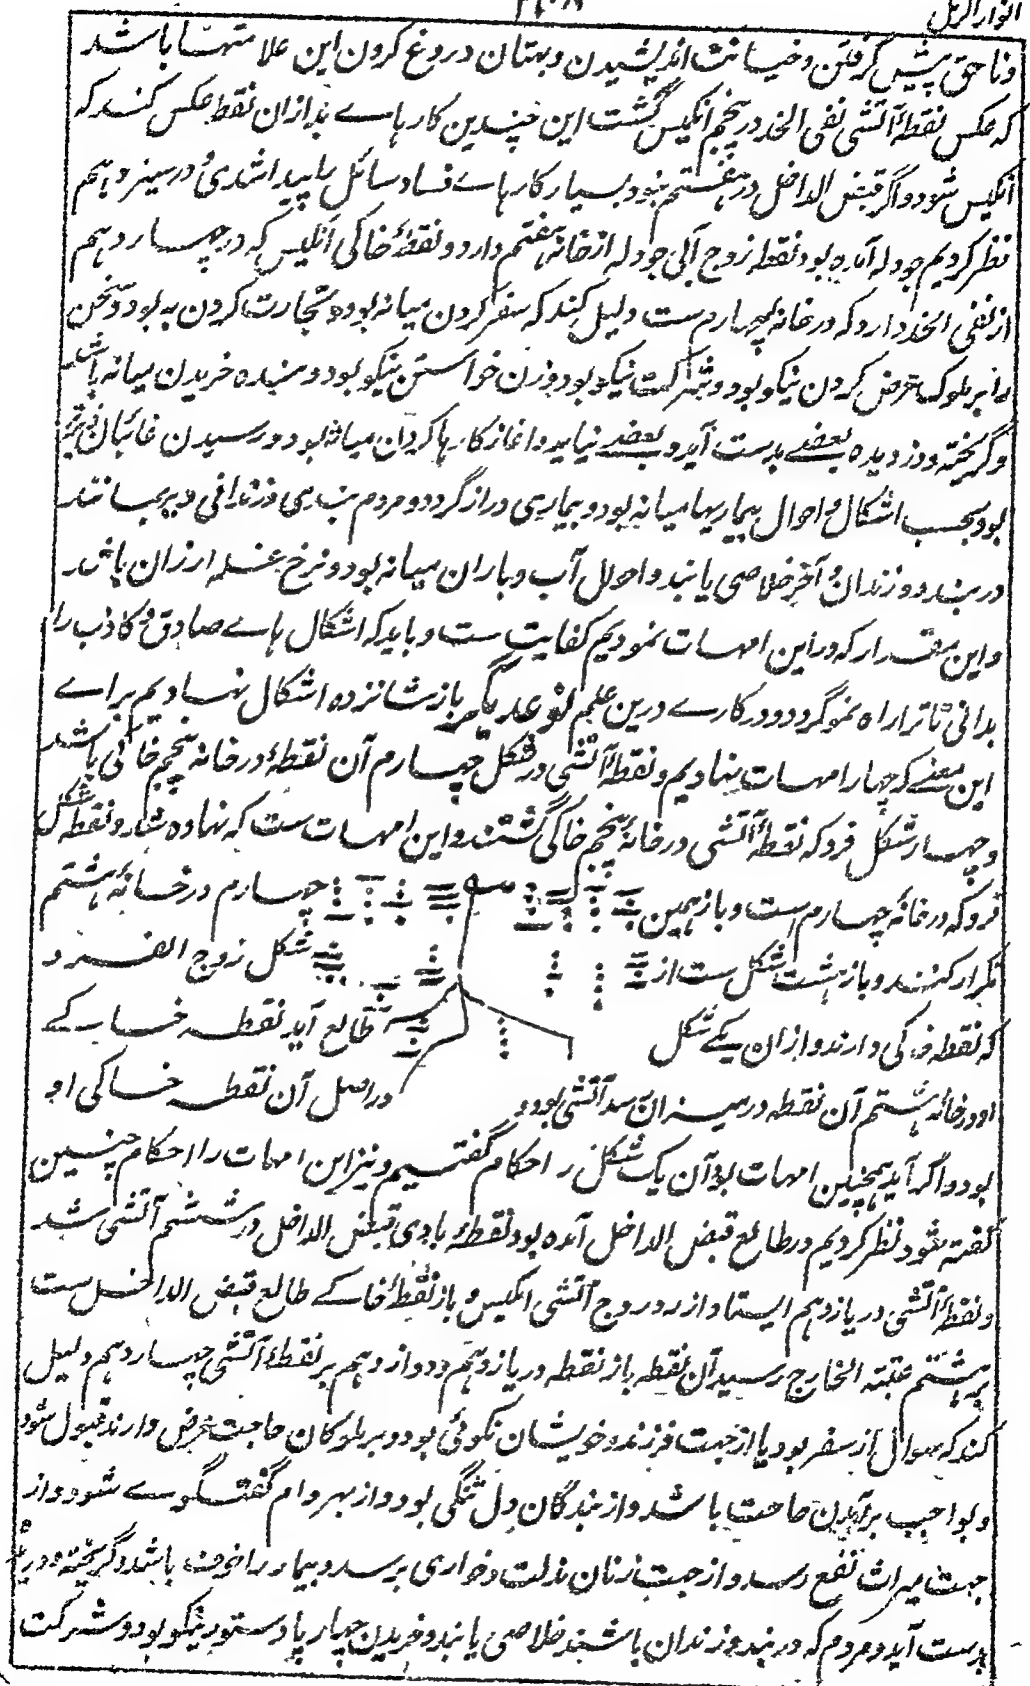 انوار الرمل
وناحق پیش گرفتن وخیانت اندیشیدن وبهتان دروغ کردن این علامتها باشد
که عکس نقطهٔ آتشی نفی الخد در پنجم انکیس گشت این چندین کارهاے بد ازان نقطه عکس کند که
انکیس شود واگر قبض الداخل در هفتم بود بسیار کارهاے فساد سائل را پیدا شدی در سیزدهم
نظر کردیم جودله آمده بود نقطه زوج آبی جودله از خانه هفتم دارد ونقطهٔ خاکی انکیس که در چهاردهم
از نفی الخد دارد که در خانه چهارم ست دلیل کند که سفر کردن میانه بود وتجارت کردن به بود وسخن
را بر ملوک عرض کردن نیکو بود وشرکت نیکو بود وزن خواستن نیکو بود وبنده خریدن میانه باشد
وگریخته ودزدیده بعضے بدست آید وبعضے نیاید واغاز کارها کردن میانه بود ورسیدن غائبان
بود بحسب اشکال واحوال بیماریها میانه بود وبیماری دراز گردد ومردم بندی وزندانی دیر بمانند
در بند وزندان وآخر خلاصی یابند واحوال آب وباران میانه بود ونرخ غله ارزان باشد
واین مقدار که دراین امهات نمودیم کفایت ست وباید که اشکال هاے صادق وکاذب را
بدانی تا ترا راه نمو گردد در کارے درین علم نوعدیگر باز شانزده اشکال نهادیم براے
این معنے که چهار امهات بنهادیم ونقطهٔ آتشی در شکل چهارم آن نقطهٔ در خانه پنجم خاکی باشد
وچهار شکل فرد که نقطهٔ آتشی در خانهٔ پنجم خاکی گشتند واین امهات ست که نهاده شد ونقطه شکل
فرد که در خانه چهارم ست وباز همین چهارم در خانهٔ هشتم
تکرار کنند وباز هشت شکل ست از شکل زوج الفرد و
که نقطه فرد کی دارند وازان یکے شکل طالع آید نقطه خاکے
او در خانه هشتم آن نقطه در میزان سد آتشی بود و در اصل آن نقطه خاکی او
بود واگر آید همچنین امهات بود آن یک شکل را احکام گفتیم ونیز این امهات را احکام چنین
گفته شود نظر کردیم در طالع قبض الداخل آمده بود نقطهٔ بادی قبض الداخل در ششم آتشی شد
ونقطهٔ آتشی در یازدهم ایستاد از ره دروج آتشی انکیس وباز نقطهٔ خاکے طالع قبض الداخل ست
بر هشتم عتبة الخارج رسید آن نقطه باز نقطه در یازدهم ودوازدهم بر نقطهٔ آتشی چهاردهم دلیل
کند که سوال از سفر بود یا از جهت فرزند وخویشان نکوئی بود وبر ملوکان حاجت عرض دارند قبول شود
وبواجب برآمدن حاجت باشد واز بندگان دل تنگی بود واز بهر وام گفتگوے شود واز
جهت میراث نفع رسد واز جهت زنان مذلت وخواری برسد وبیمار را خوف باشد وگریخته
بدست آید ومردم که در بند وزندان باشند خلاصی یابند وخریدن چهارپا وستور نیکو بود وشرکت